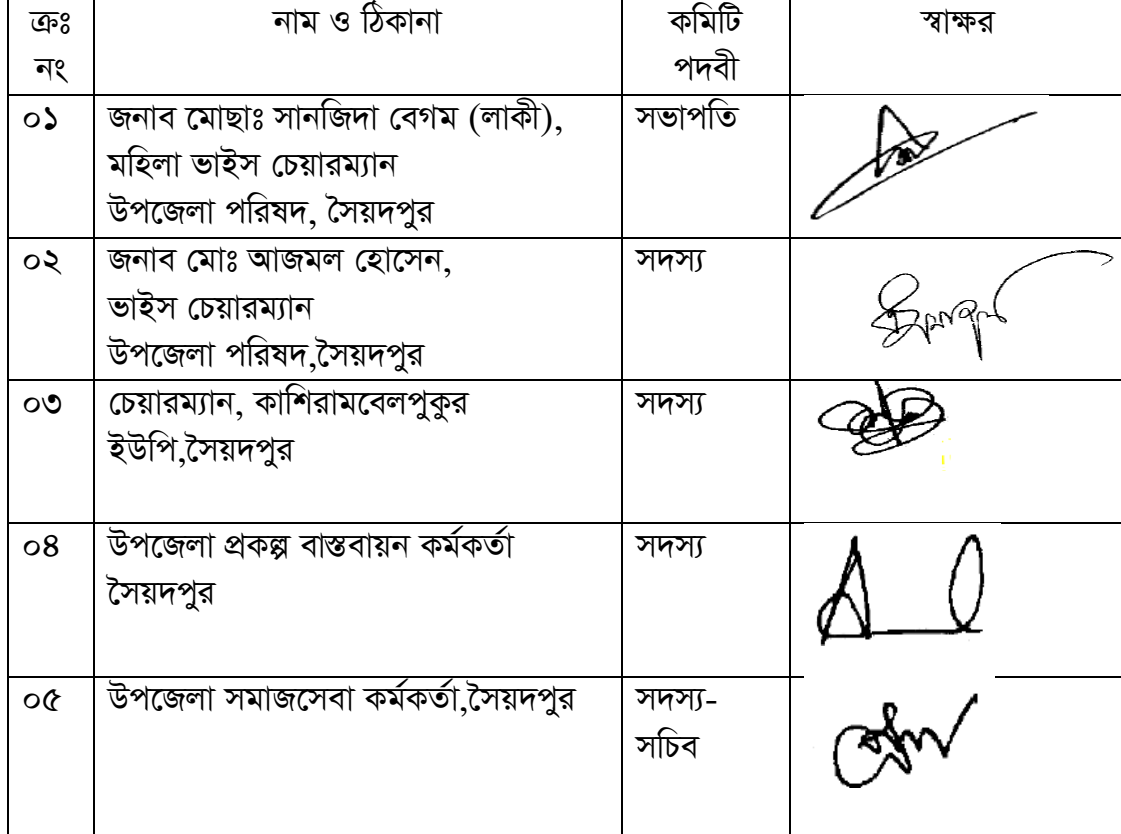 ক্রঃ নাম ও ঠিকানা কমিটি স্বাক্ষর
নং পদবী
০১ জনাব মোছাঃ সানজিদা বেগম (লাকী), সভাপতি
মহিলা ভাইস চেয়ারম্যান
উপজেলা পরিষদ, সৈয়দপুর
০২ জনাব মোঃ আজমল হোসেন, সদস্য
ভাইস চেয়ারম্যান
উপজেলা পরিষদ,সৈয়দপুর
০৩ চেয়ারম্যান, কাশিরামবেলপুকুর সদস্য
ইউপি,সৈয়দপুর
০৪ উপজেলা প্রকল্প বাস্তবায়ন কর্মকর্তা সদস্য
সৈয়দপুর
০৫ উপজেলা সমাজসেবা কর্মকর্তা,সৈয়দপুর সদস্য-
সচিব